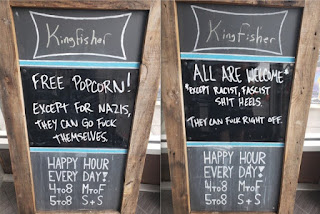 Kingfisher
FREE POPCORN!
EXCEPT FOR NAZIS,
THEY CAN GO FUCK
THEMSELVES.
HAPPY HOUR
EVERY DAY!
4TO8 MTOF
5TO8 S+S
Kingfisher
ALL ARE WELCOME*
*EXCEPT RACIST, FASCIST
SHIT HEELS.
THEY CAN FUCK RIGHT OFF.
HAPPY HOUR
EVERY DAY!
4TO8 MTOF
5TO8 S+S